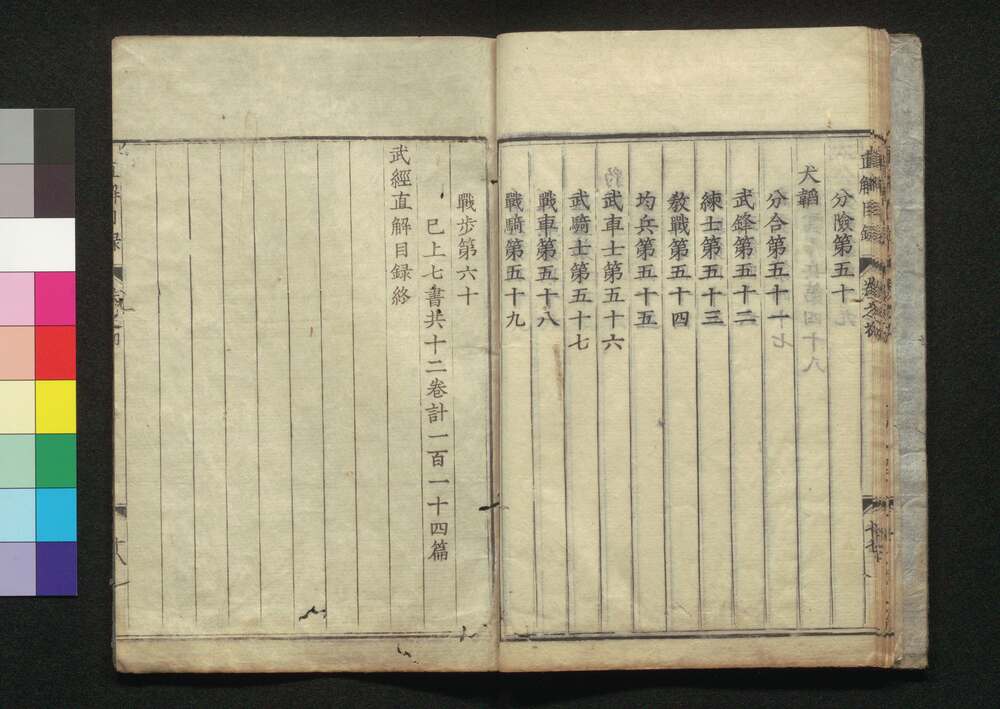 分險第五十
犬韜
分合第五十一
武鋒第五十二
練士第五十三
教戰第五十四
均兵第五十五
武車士第五十六
武騎士第五十七
戰車第五十八
戰騎第五十九
戰步第六十
已上七書共十二卷計一百一十四篇
武經直解目録終